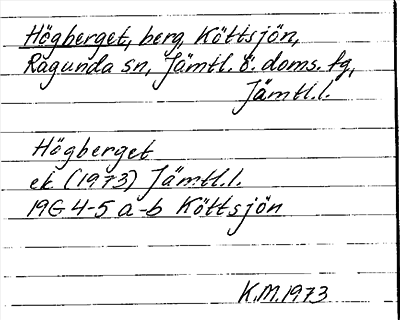 Högberget, berg, Köttsjön,
Ragunda sn, Jämtl. ö. doms. tg,
Jämtl.l.
Högberget
ek. (1973) Jämtl.l.
19G 4-5 a-b Köttsjön
K.M.1973